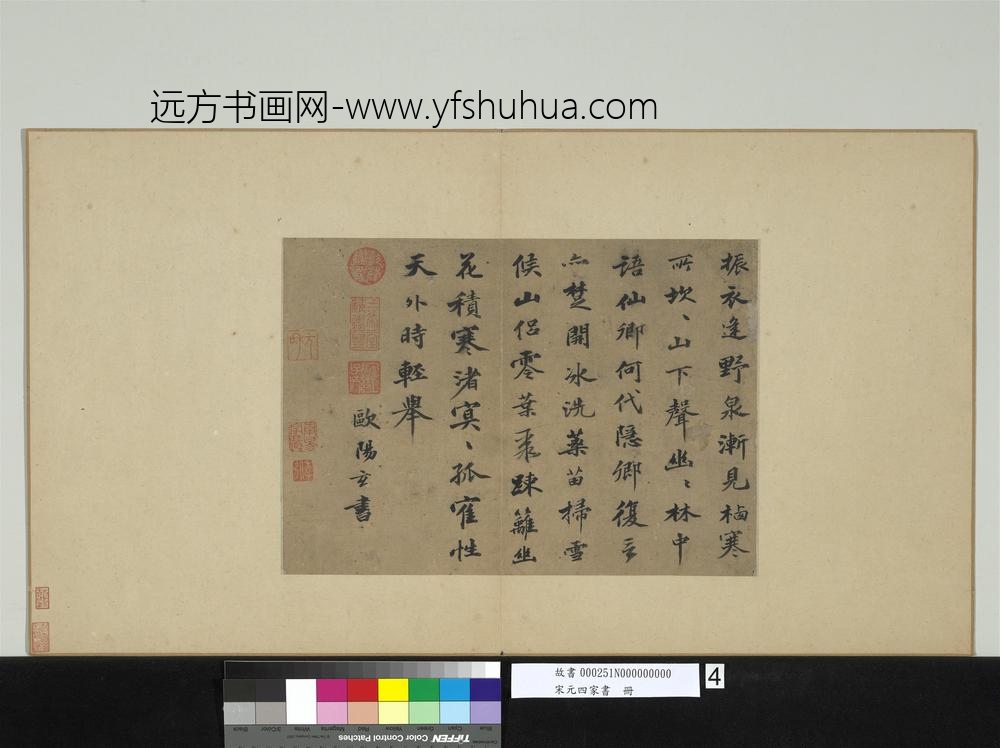 远方书画网-www.yfshuhua.com
振衣逢野泉漸見栖寒
所坎、山下聲幽、林中
語仙卿何代隱卿復言
亦楚開冰洗藥苗掃雪
候山侶零葉聚踈籬幽
花積寒渚㝠、孤寉性
天外時輕舉
歐陽玄書
故書 000251N000000000
宋元四家書 冊
4
Black
3/Color
White
Magenta
Red
Yellow
Green
Cyan
Blue
TIFFEN Color Control Patches